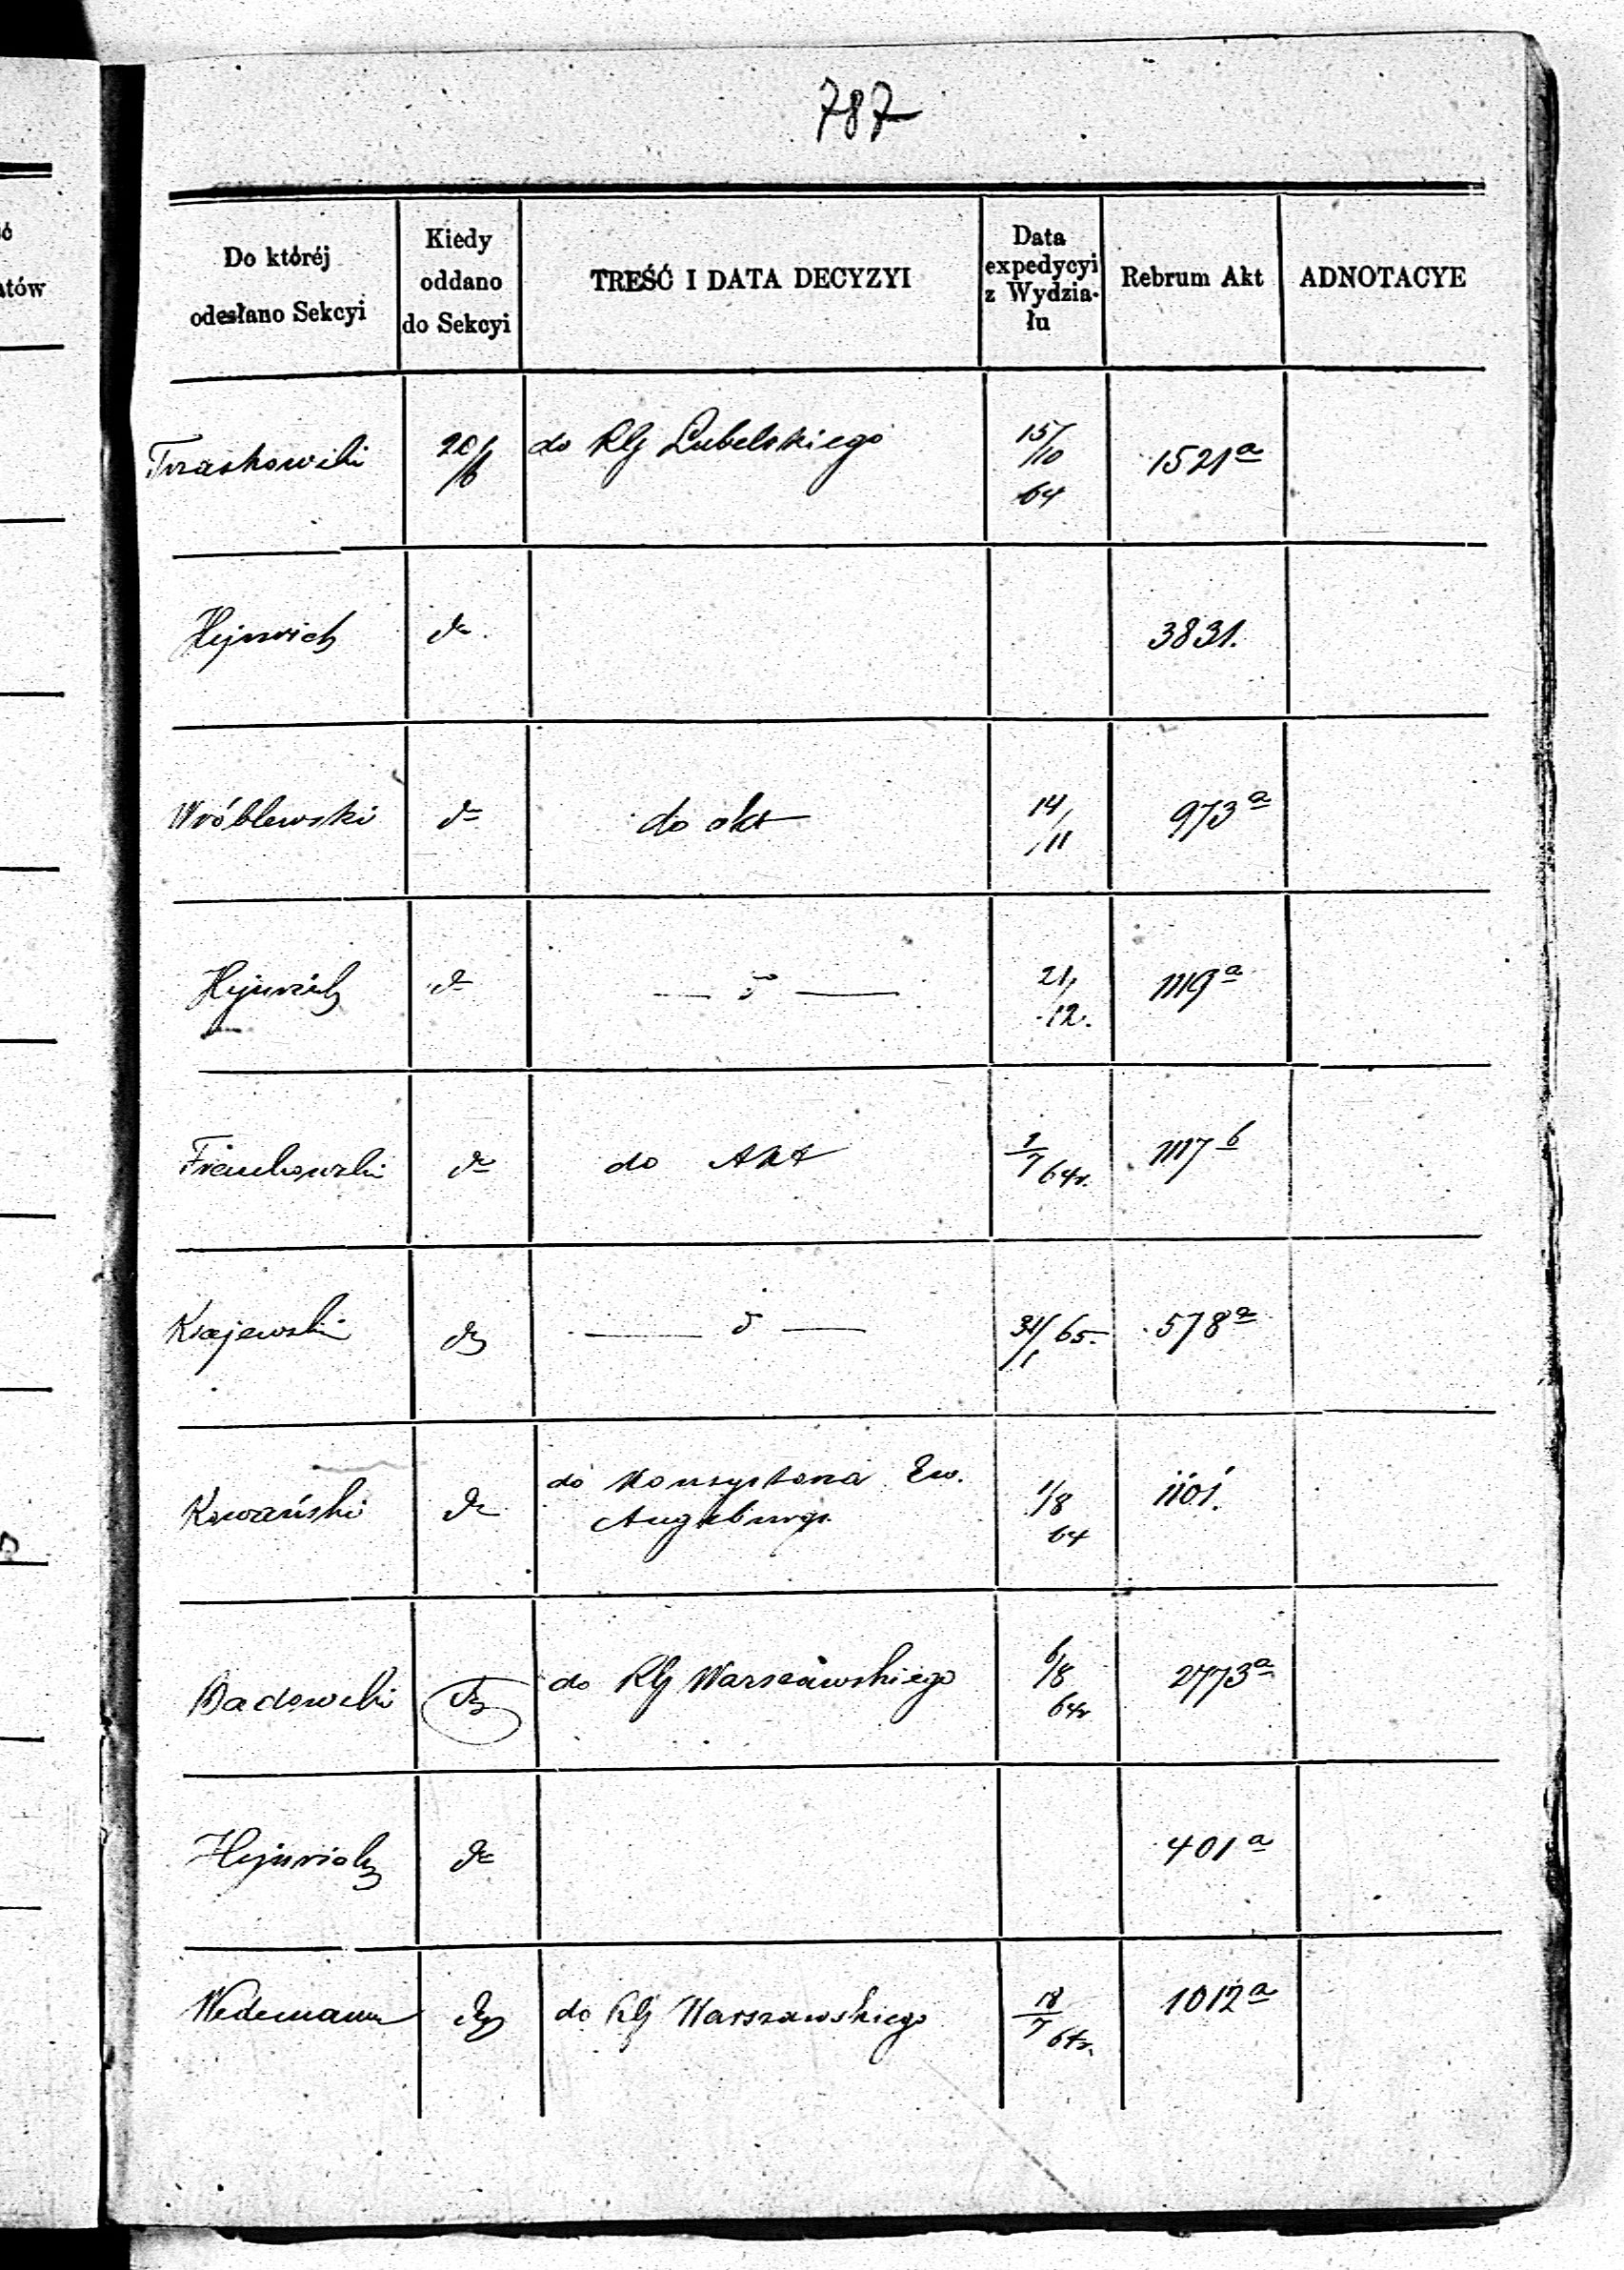 787
Do któréj odesłano Sekcyi
Kiedy oddano do Sekcyi
TREŚĆ I DATA DECYZYI
Data expedycyi z Wydzia- łu
Rebrum Akt
ADNOTACYE
20/6 do Rłg Lubelskiego 15/10 64 1521 a
3831.
Wróblewski do do akt 14/11 973 a
do — 21/12. 1119 a
do do Akt 1/7 64r. 1117 b
Krajewski do — 31/1 65. 578 a
do do Konsystorza Ew. Augsburgs. 1/8 64 1101.
Badowski do do Rłg Warszawskiego 6/8 64r 2773 a
do 401 a
Wedemann do do Rłg Warszawskiego 18/7 64r. 1012 a